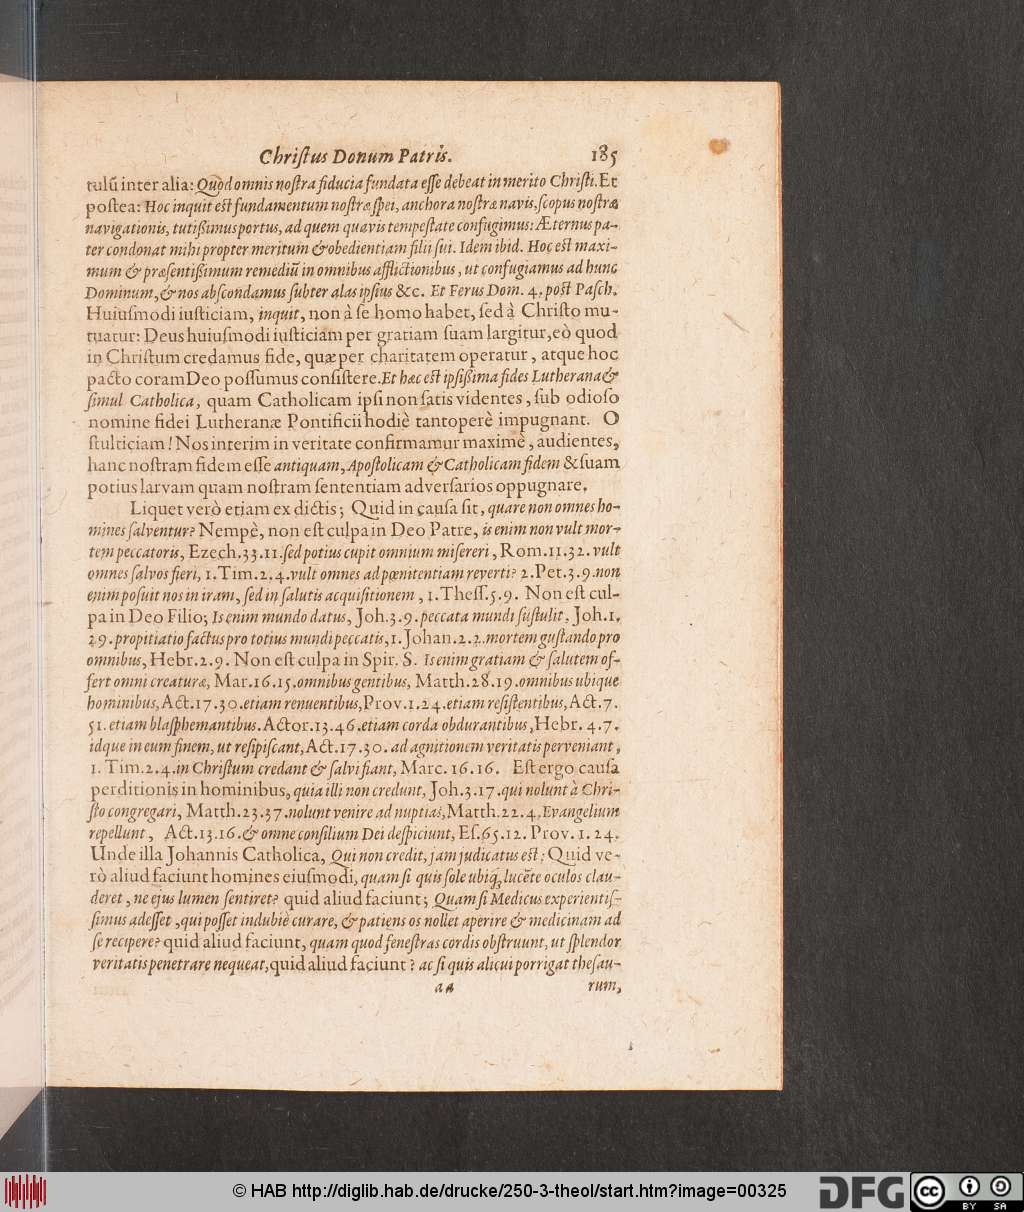 Christus Donum Patris. 185
tulū inter alia: Quod omnis nostra fiducia fundata esse debeat in merito Christi. Et
postea: Hoc inquit est fundamentum nostræ spei, anchora nostræ navis, scopus nostræ
navigationis, tutißimus portus, ad quem quavis tempestate confugimus: Æternus pa-
ter condonat mihi propter meritum & obedientiam filii sui. Idem ibid. Hoc est maxi-
mum & præsentißimum remediū in omnibus afflictionibus, ut confugiamus ad hunc
Dominum, & nos abscondamus subter alas ipsius &c. Et Ferus Dom. 4. post Pasch.
Huiusmodi iusticiam, inquit, non à se homo habet, sed à Christo mu-
tuatur: Deus huiusmodi iusticiam per gratiam suam largitur, eò quod
in Christum credamus fide, quæ per charitatem operatur, atque hoc
pacto coram Deo possumus consistere. Et hæc est ipsißima fides Lutherana &
simul Catholica, quam Catholicam ipsi non satis videntes, sub odioso
nomine fidei Lutheranæ Pontificii hodiè tantoperè impugnant. O
stulticiam! Nos interim in veritate confirmamur maximè, audientes,
hanc nostram fidem esse antiquam, Apostolicam & Catholicam fidem & suam
potius larvam quam nostram sententiam adversarios oppugnare.
Liquet verò etiam ex dictis; Quid in causa sit, quare non omnes ho-
mines salventur? Nempè, non est culpa in Deo Patre, is enim non vult mor-
tem peccatoris, Ezech. 33. 11. sed potius cupit omnium misereri, Rom. 11. 32. vult
omnes salvos fieri, 1. Tim. 2. 4. vult omnes ad pœnitentiam reverti? 2. Pet. 3. 9. non
enim posuit nos in iram, sed in salutis acquisitionem, 1. Thess. 5. 9. Non est cul-
pa in Deo Filio; Is enim mundo datus, Joh. 3. 9. peccata mundi sustulit, Joh. 1.
29. propitiatio factus pro totius mundi peccatis, 1. Johan. 2. 2. mortem gustando pro
omnibus, Hebr. 2. 9. Non est culpa in Spir. S. Is enim gratiam & salutem of-
fert omni creaturæ, Mar. 16. 15. omnibus gentibus, Matth. 28. 19. omnibus ubique
hominibus, Act. 17. 30. etiam renuentibus, Prov. 1. 24. etiam resistentibus, Act. 7.
51. etiam blasphemantibus. Actor. 13. 46. etiam corda obdurantibus, Hebr. 4. 7.
idque in eum finem, ut resipiscant, Act. 17. 30. ad agnitionem veritatis perveniant,
1. Tim. 2. 4. in Christum credant & salvi fiant, Marc. 16. 16. Est ergo causa
perditionis in hominibus, quia illi non credunt, Joh. 3. 17. qui nolunt à Chri-
sto congregari, Matth. 23. 37. nolunt venire ad nuptias, Matth. 22. 4. Evangelium
repellunt, Act. 13. 16. & omne consilium Dei despiciunt, Es. 65. 12. Prov. 1. 24.
Unde illa Johannis Catholica, Qui non credit, jam judicatus est: Quid ve-
rò aliud faciunt homines eiusmodi, quam si quis sole ubiq; lucēte oculos clau-
deret, ne ejus lumen sentiret? quid aliud faciunt; Quam si Medicus experientis-
simus adesset, qui posset indubiè curare, & patiens os nollet aperire & medicinam ad
se recipere? quid aliud faciunt, quam quod fenestras cordis obstruunt, ut splendor
veritatis penetrare nequeat, quid aliud faciunt? ac si quis alicui porrigat thesau-
aa rum,
© HAB http://diglib.hab.de/drucke/250-3-theol/start.htm?image=00325
DFG cc BY SA